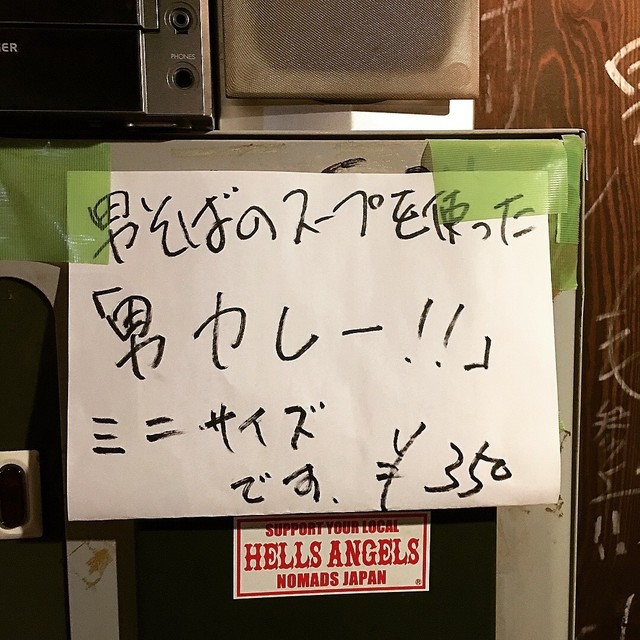 GER
PHONES
男そばのスープを使った
「男カレー!!」
ミニサイズ
です. ¥350
SUPPORT YOUR LOCAL
HELLS ANGELS
NOMADS JAPAN
®